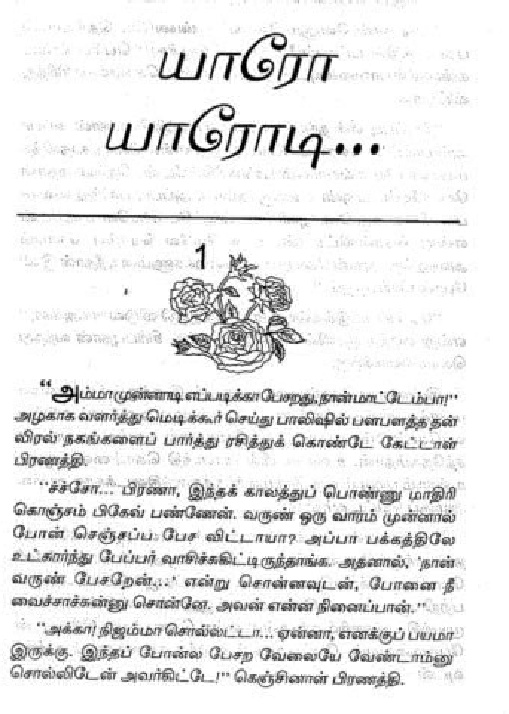 யாரோ
யாரோடி...
1
“அம்மா முன்னாடி எப்படிக்கா பேசறது, நான் மாட்டேம்பா!”
அழகாக வளர்த்து மெடிக்கூர் செய்து பாலிஷில் பளபளத்த தன்
விரல் நகங்களைப் பார்த்து ரசித்துக் கொண்டே கேட்டாள்
பிரணத்தி.
“ச்ச்சோ... பிரணா, இந்தக் காலத்துப் பொண்ணு மாதிரி
கொஞ்சம் பிகேவ் பண்ணேன். வருண் ஒரு வாரம் முன்னால்
போன் செஞ்சப்ப பேச விட்டாயா? அப்பா பக்கத்திலே
உட்கார்ந்து பேப்பர் வாசிச்சுகிட்டிருந்தாங்க. அதனால், 'நான்
வருண் பேசறேன்...' என்று சொன்னவுடன், போனை நீ
வைச்சாச்சுன்னு சொன்னே. அவன் என்ன நினைப்பான்.”
“அக்கா! நிஜம்மா சொல்லட்டா... ஏன்னா, எனக்குப் பயமா
இருக்கு. இந்தப் போன்ல பேசற வேலையே வேண்டாம்னு
சொல்லிடேன் அவர்கிட்டே!” கெஞ்சினாள் பிரணத்தி.